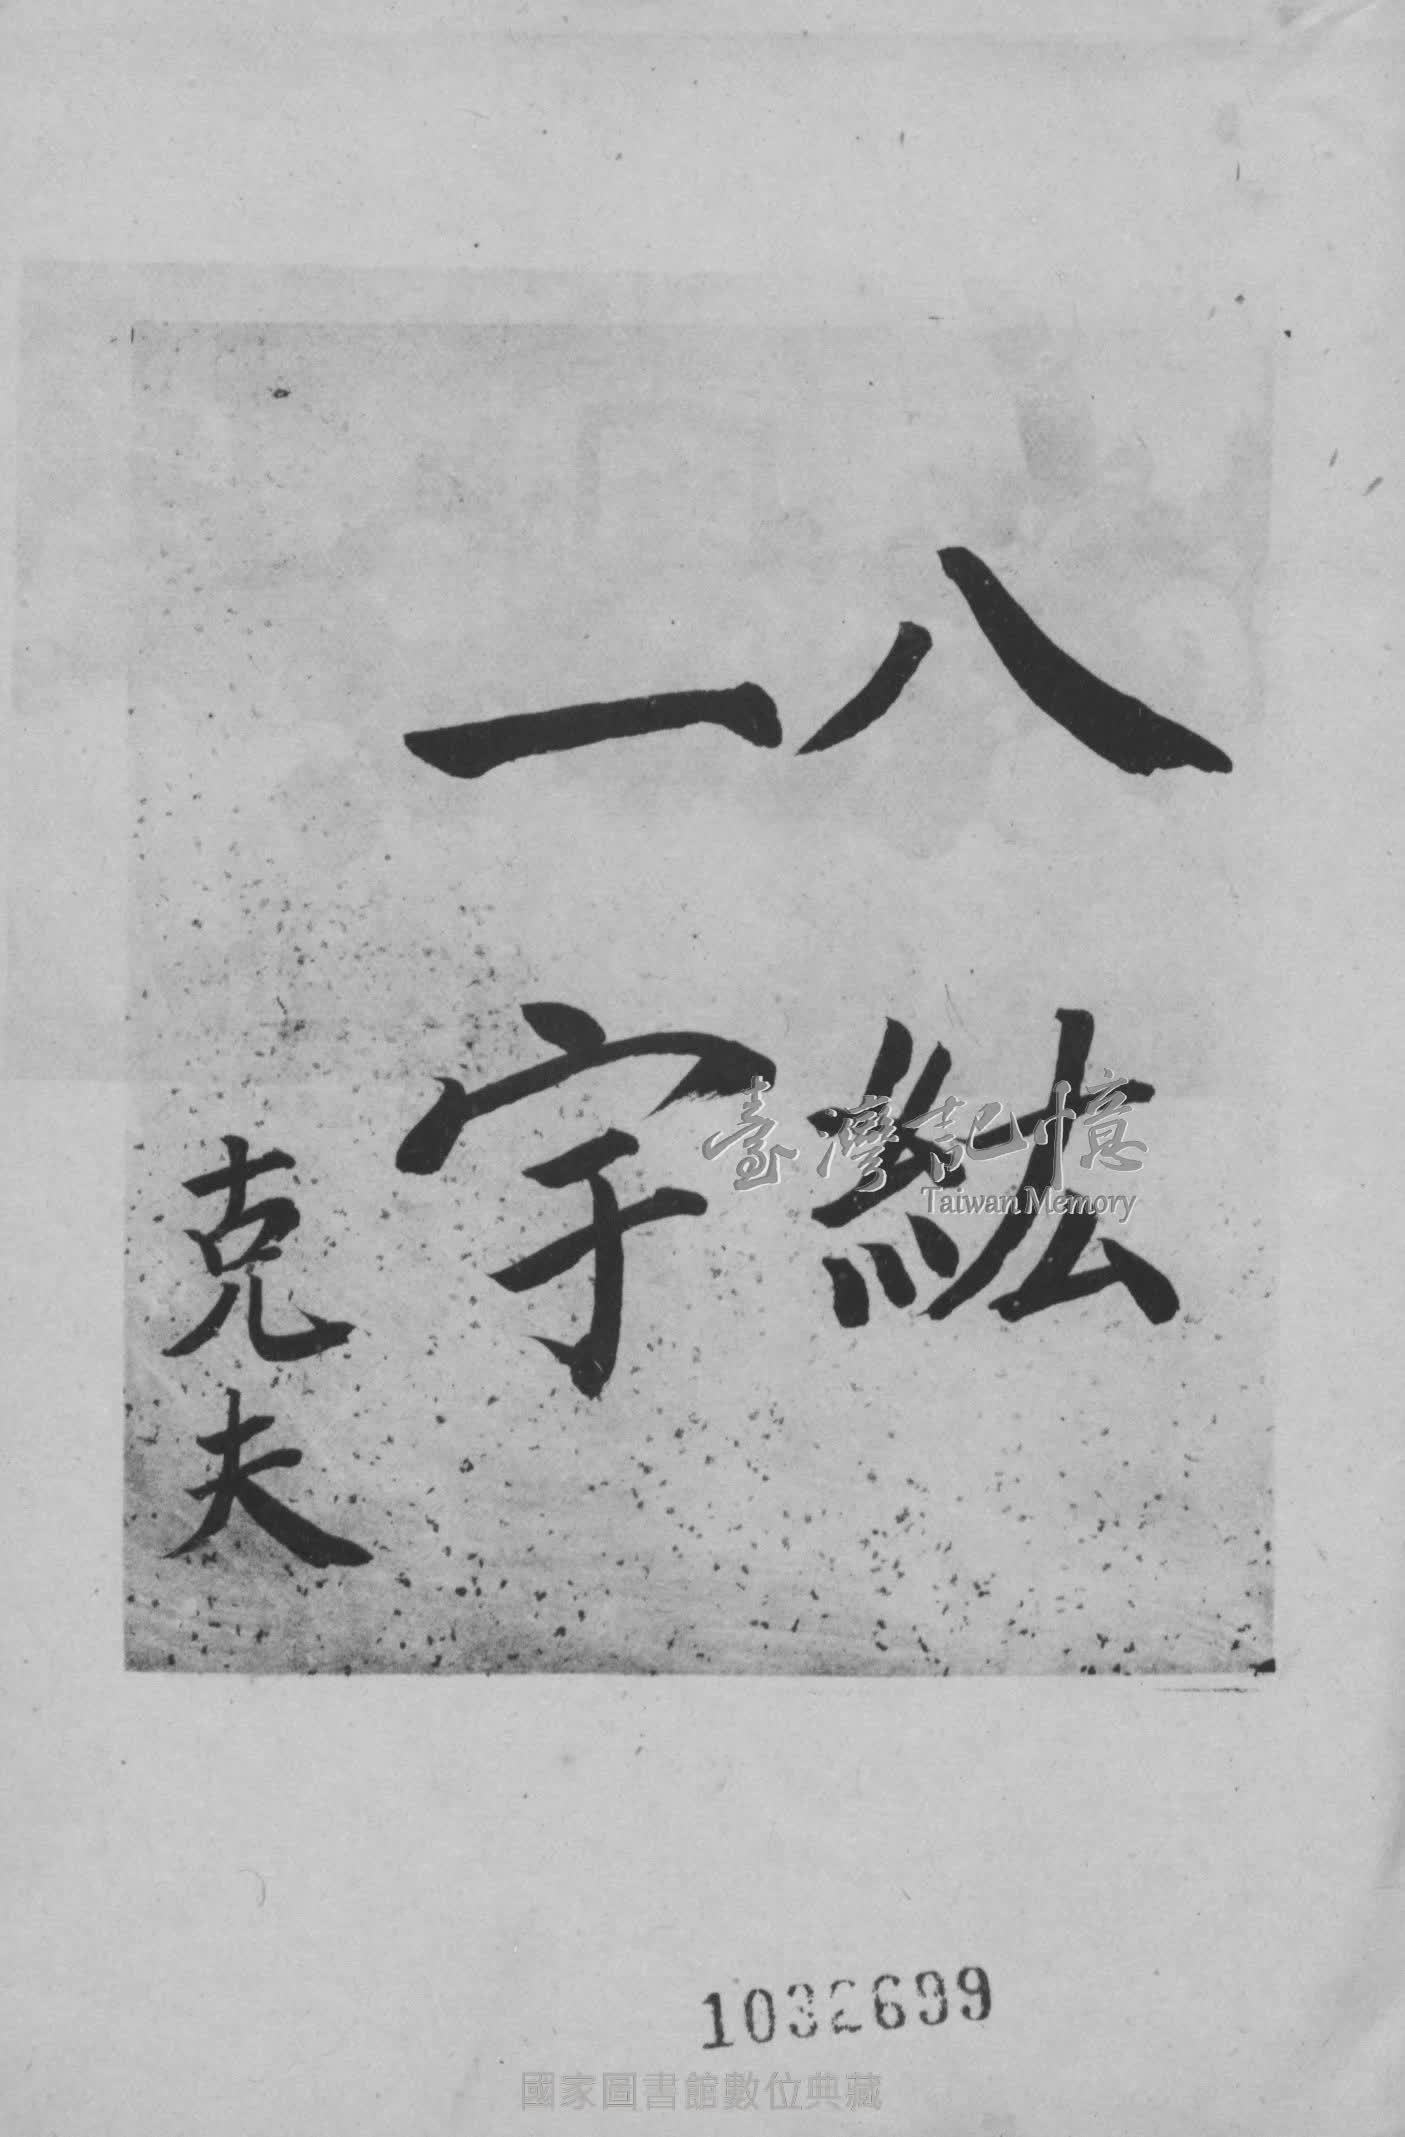 八紘
一宇
克夫
臺灣記憶
Taiwan Memory
1032699
國家圖書館數位典藏